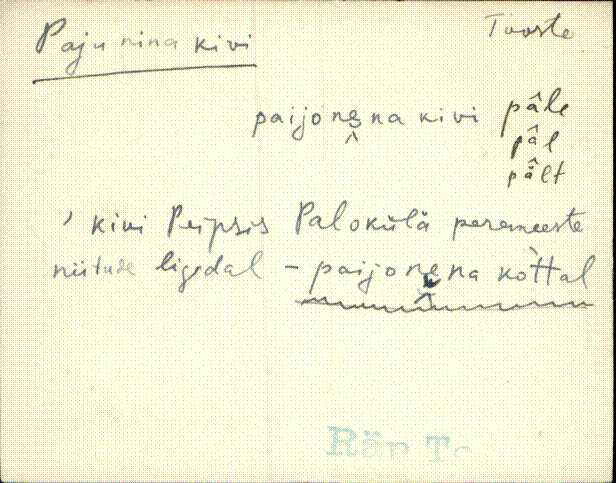 Paju nina kivi
Tooste
paijonena kivi pâle
pâl
pâlt
' kivi Peipsis Paloküla peremeeste
niitude ligedal – paijonena kòttal
Räp